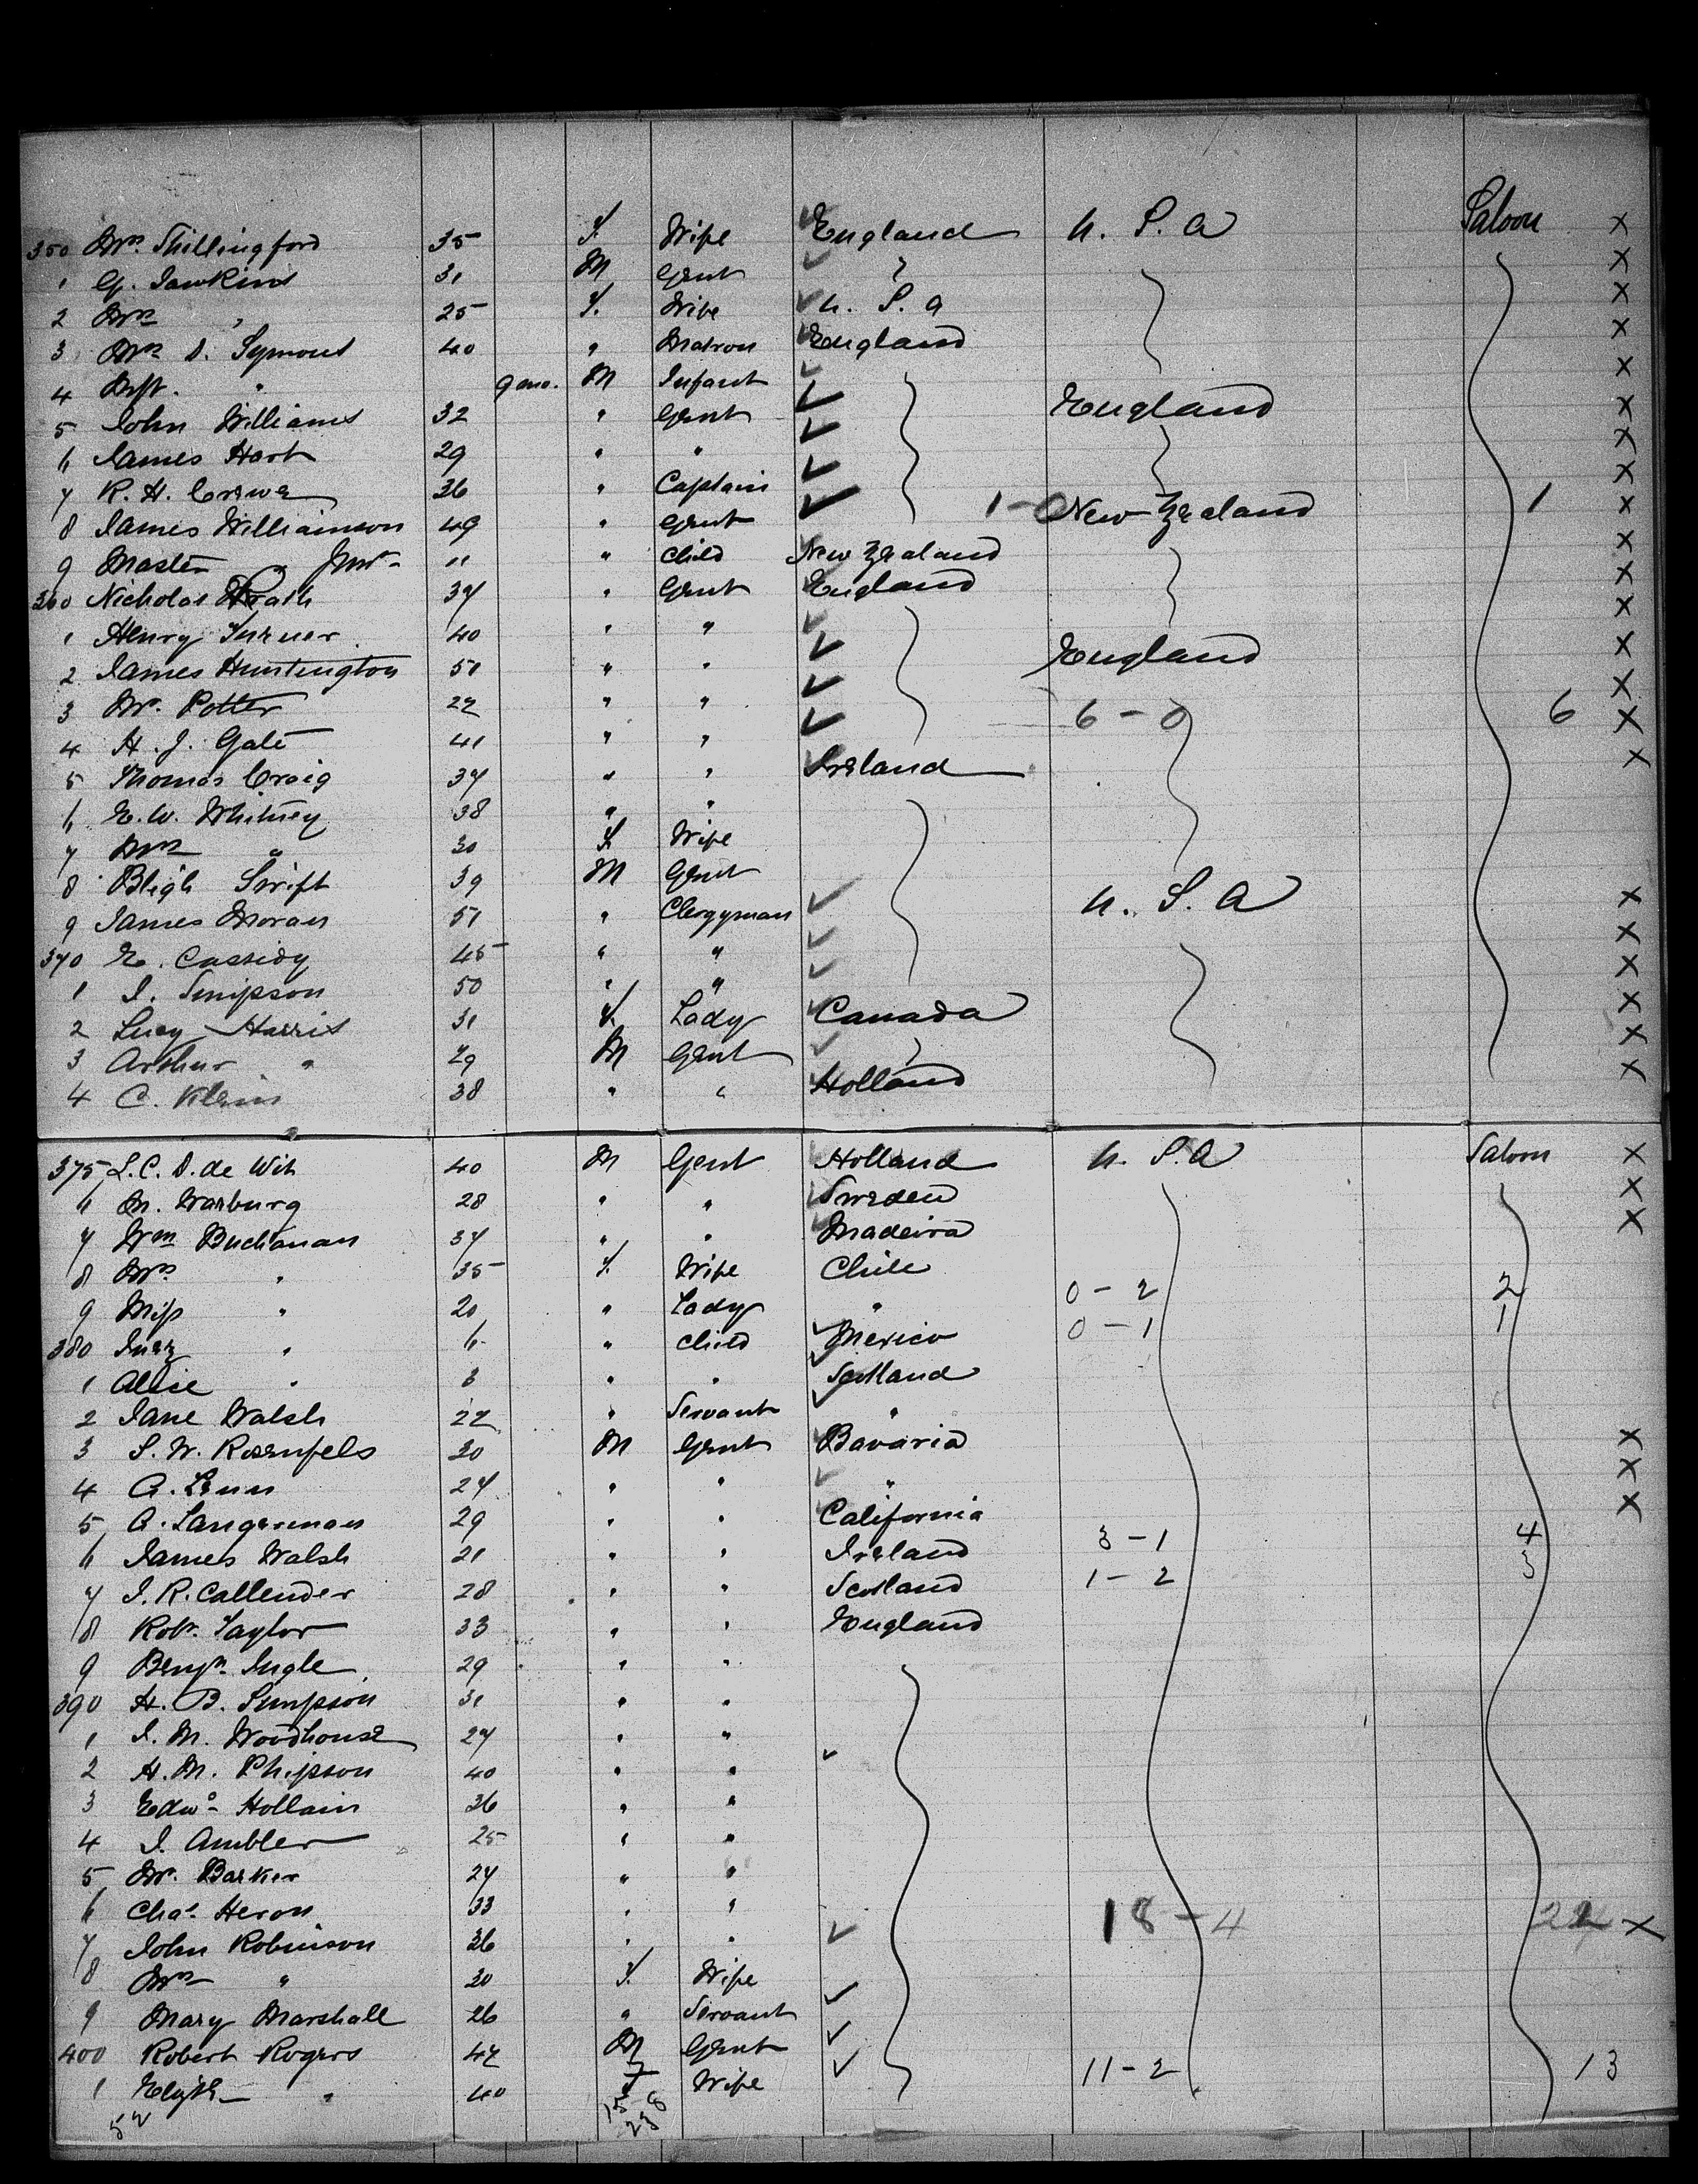 350 Mrs Shillingford 35 F. Wife England U. S. A Saloon X
1 G. Jawkins 31 M Gent X
2 Mrs " 25 F. Wife U. S. A X
3 Mrs D. Symons 40 " Matron England X
4 " 9 mo. M Infant X
5 John Williams 32 " Gent England X
6 James Hart 29 " " X
7 R. H. Crewe 36 " Captain X
8 James Williamson 49 " Gent 1-0 New Zealand 1 X
9 Master " Junr 11 " Child New Zealand X
360 Nicholas 37 " Gent England X
1 Henry Turner 40 " " X
2 James Huntington 51 " " England X
3 Mr. Potter 22 " " X
4 H. J. Gale 41 " " 6-0 6 X
5 Thomas Craig 37 " " Ireland X
6 E. W. Whitney 38 " "
7 Mrs " 30 F. Wife
8 Bligh Swift 39 M Gent
9 James Moran 51 " Clergyman U. S. A X
370 E. Cassidy 45 " " X
1 J. Simpson 50 " " X
2 Lucy Harris 31 F. Lady Canada X
3 Arthur " 29 M Gent X
4 C. Klein 38 " " Holland X
375 L. C. D. de Wit 40 M Gent Holland U. S. A Saloon X
6 M. Warburg 28 " " Sweden X
7 Wm Buchanan 37 " " Madeira X
8 Mrs " 35 F. Wife Chile
9 Miss " 20 " Lady " 0-2 2
380 Inez " 6 " Child Mexico 0-1 1
1 Alice " 3 " " Scotland
2 Jane Walsh 22 " Servant "
3 S. W. Rosenfels 30 M Gent Bavaria X
4 A. Lenn 27 " " " X
5 A. Langerman 29 " " California X
6 James Walsh 21 " " Ireland 3-1 4
7 J. R. Callender 28 " " Scotland 1-2 3
8 Robt. Taylor 33 " " England
9 Benjn. Ingle 29 " "
390 H. B. Simpson 31 " "
1 J. M. Woodhouse 27 " "
2 H. M. Phipson 40 " "
3 Edwd. Hollain 36 " "
4 J. Ambler 25 " "
5 Mr. Barker 27 " "
6 Chas. Heron 33 " " 18-4 22 X
7 John Robinson 36 " "
8 Mrs " 30 F. Wife
9 Mary Marshall 26 " Servant
400 Robert Rogers 42 M Gent
1 " 40 F Wife 11-2 13
52